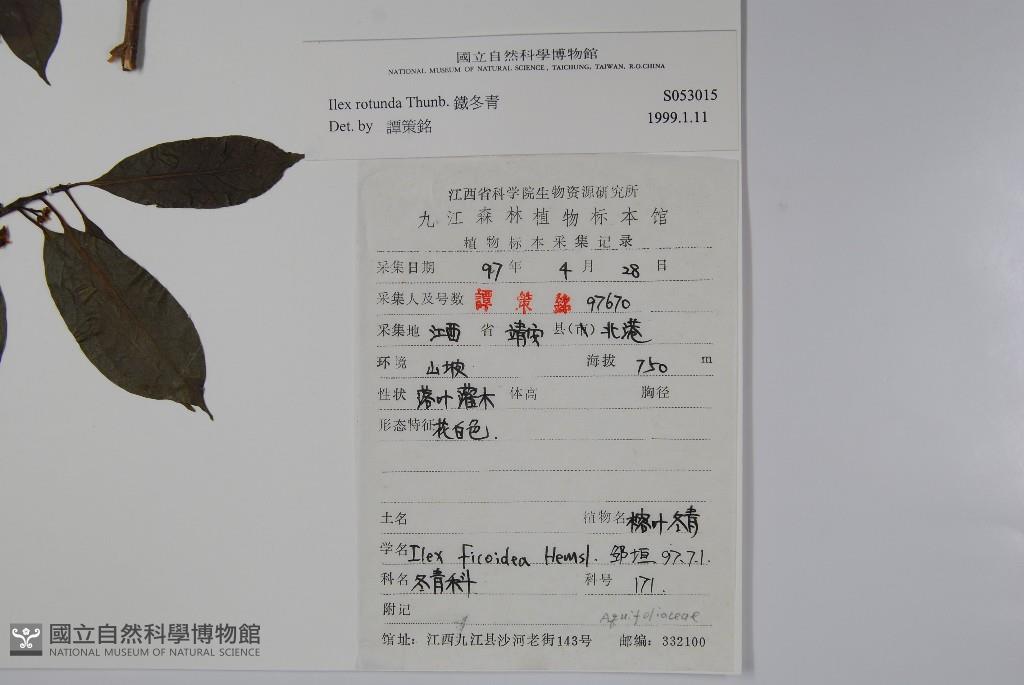 國立自然科學博物館
NATIONAL MUSEUM OF NATURAL SCIENCE, TAICHUNG, TAIWAN, R.O.CHINA
Ilex rotunda Thunb. 鐵冬青 S053015
Det. by 譚策銘 1999.1.11
江西省科学院生物资源研究所
九江森林植物标本馆
植物标本采集记录
采集日期 97 年 4 月 28 日
采集人及号数 譚策銘 97670
采集地 江西 省 靖安 县(市) 北港
环境 山坡 海拔 750 m
性状 落叶灌木 体高 胸径
形态特征 花白色.
土名 植物名 榕叶冬青
学名 Ilex ficoidea Hemsl. 邹垣 97.7.1.
科名 冬青科 科号 171.
附记 Aquifoliaceae
馆址: 江西九江县沙河老街143号 邮编: 332100
國立自然科學博物館
NATIONAL MUSEUM OF NATURAL SCIENCE